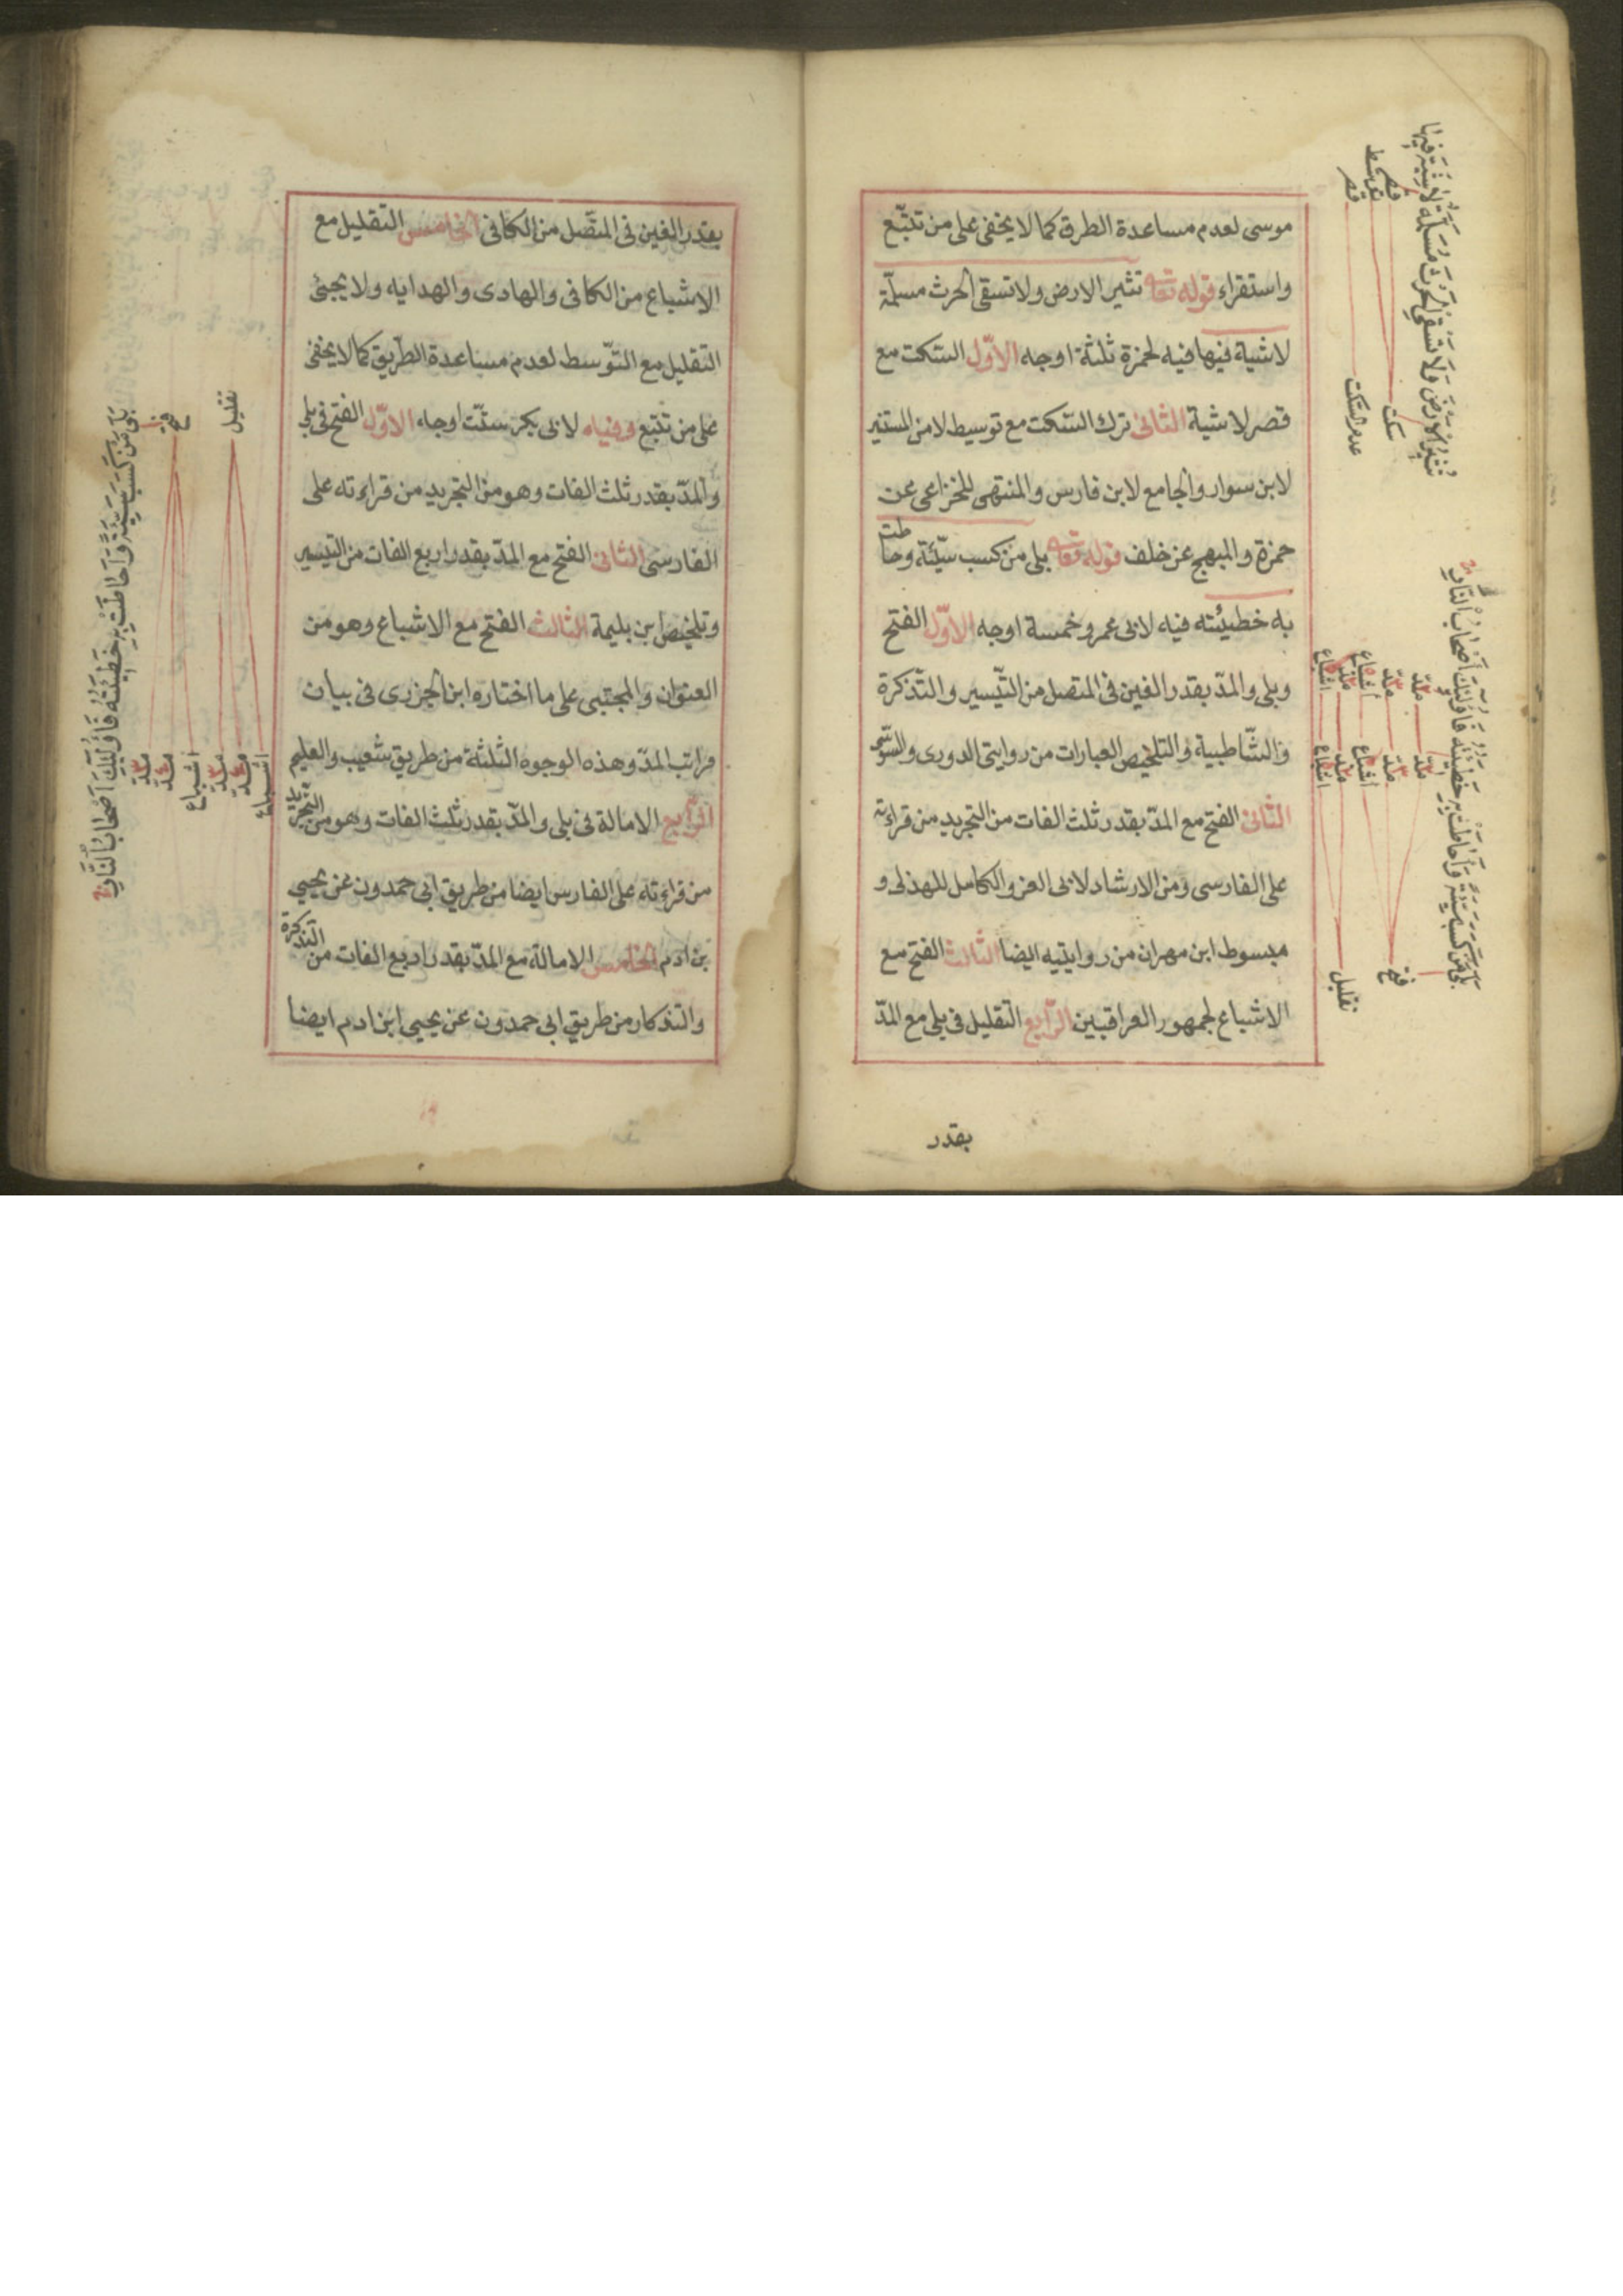 موسى لعدم مساعدة الطرق كما لا يخفى على من تتبّع
واستقراء قوله تعالى تثير الارض ولا تسقى الحرث مسلّمة
لاشية فيها فيه لحمزة ثلثة اوجه الاوّل السّكت مع
قصر لاشية الثانى ترك السّكت مع توسيط لا من المستنير
لابن سوار والجامع لابن فارس والمنتهى للخزاعى عن
حمزة والمبهج عن خلف قوله تعالى بلى من كسب سيّئة وحاطت
به خطيئته فيه لابى عمرو خمسة اوجه الاوّل الفتح
وبلى والمدّ بقدر الفين فى المتصل من التّيسير والتّذكرة
والشّاطبية والتلخيص العبارات من روايتى الدورى والسّوسى
الثّانى الفتح مع المدّ بقدر ثلث الفات من التجريد من قراءته
على الفارسى ومن الارشاد لابى العز والكامل للهذلى و
مبسوط ابن مهران من روايتيه ايضا الثالث الفتح مع
الاشباع لجمهور العراقيين الرّابع التقليل فى بلى مع المدّ
بقدر
تُثِيرُ الْاَرْضَ وَلَا تَسْقِى الْحَرْثَ مُسَلَّمَةٌ لَاشِيَةَ فِيهَا
قصر
توسط
قصر
سكت
عدم السّكت
بَلَى مَنْ كَسَبَ سَيِّئَةً وَاَحَاطَتْ بِهِ خَطِيئَتُهُ فَاُولٰئِكَ اَصْحَابُ النَّارِ
مدّ
مدّ
اشباع
مدّ
اشباع
مدّ
مدّ
اشباع
مدّ
اشباع
فتح
تقليل
بقدر الفين فى المتّصل من الكافى الخامس التقليل مع
الاشباع من الكافى والهادى والهدايه ولا يجئ
التقليل مع التّوسط لعدم مساعدة الطّريق كما لا يخفى
على من تتبّع وفيه لابى بكر ستّت اوجه الاوّل الفتح فى بلى
والمدّ بقدر ثلث الفات وهو من التجريد من قراءته على
الفارسى الثانى الفتح مع المدّ بقدر اربع الفات من التّيسير
وتلخيص ابن بليمة الثالث الفتح مع الاشباع وهو من
العنوان والمجتبى على ما اختاره ابن الجزرى فى بيان
مراتب المدّ وهذه الوجوه الثلثة من طريق شعيب والعليم
الرّابع الامالة فى بلى والمدّ بقدر ثلث الفات وهو من التجريد
من قراءته على الفارس ايضا من طريق ابى حمدون عن يحيى
بن ادم الخامس الامالة مع المدّ بقدر اربع الفات من التذكرة
والتذكار من طريق ابى حمدون عن يحيى ابن ادم ايضا
بَلَى مَنْ كَسَبَ سَيِّئَةً وَاَحَاطَتْ بِهِ خَطِيئَتُهُ فَاُولٰئِكَ اَصْحَابُ النَّارِ
فتح
تقليل
مدّ
مدّ
اشباع
مدّ
مدّ
اشباع